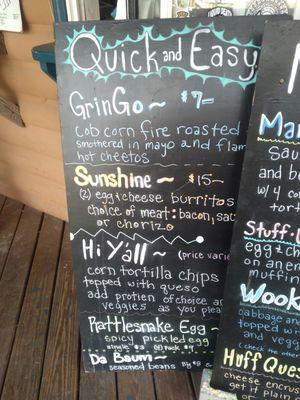 Quick and Easy
GrinGo ~ $7
cob corn fire roasted
smothered in mayo and flam
hot cheetos
Sunshine ~ $15
(2) egg & cheese burritos
choice of meat: bacon, sau
or chorizo
Hi Y'all ~ (price varie
corn tortilla chips
topped with queso
add protien of choice an
veggies as you please
Rattlesnake Egg ~
spicy pickled egg
single $3
Da Baum ~
seasoned beans
Ma
Sau
and b
w/ 4 co
tort
Stuff-
egg & ch
on an en
muffin
Wook
cabbage an
topped wi
and vegg
(check the other
Huff Ques
cheese encrus
get it plain